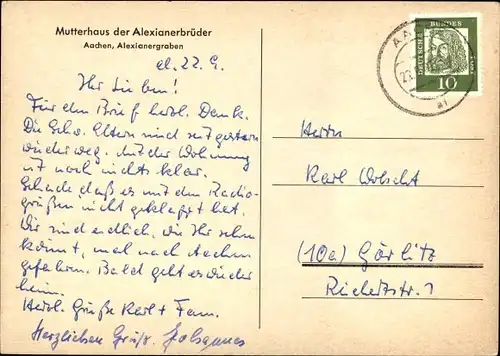 Mutterhaus der Alexianerbrüder
Aachen, Alexianergraben
d. 22. 9.
Ihr Lieben!
Für den Brief herzl. Dank.
Die Schw. Eltern sind seit gestern
wieder weg. Mit der Wohnung
ist noch nichts klar.
Schade daß es mit den Radio-
grüßen nicht geklappt hat.
Wir sind endlich, die Ihr sehen
könnt, mal nach Aachen
gefahren. Bald geht es wieder
heim.
Herzl. Grüße Karl + Fam.
Herzlichen Gruß Johannes
DEUTSCHE
BUNDES
POST
10
AA
23.
al
Herrn
Karl Wolscht
(10a) Görlitz
Riechertstr. 1